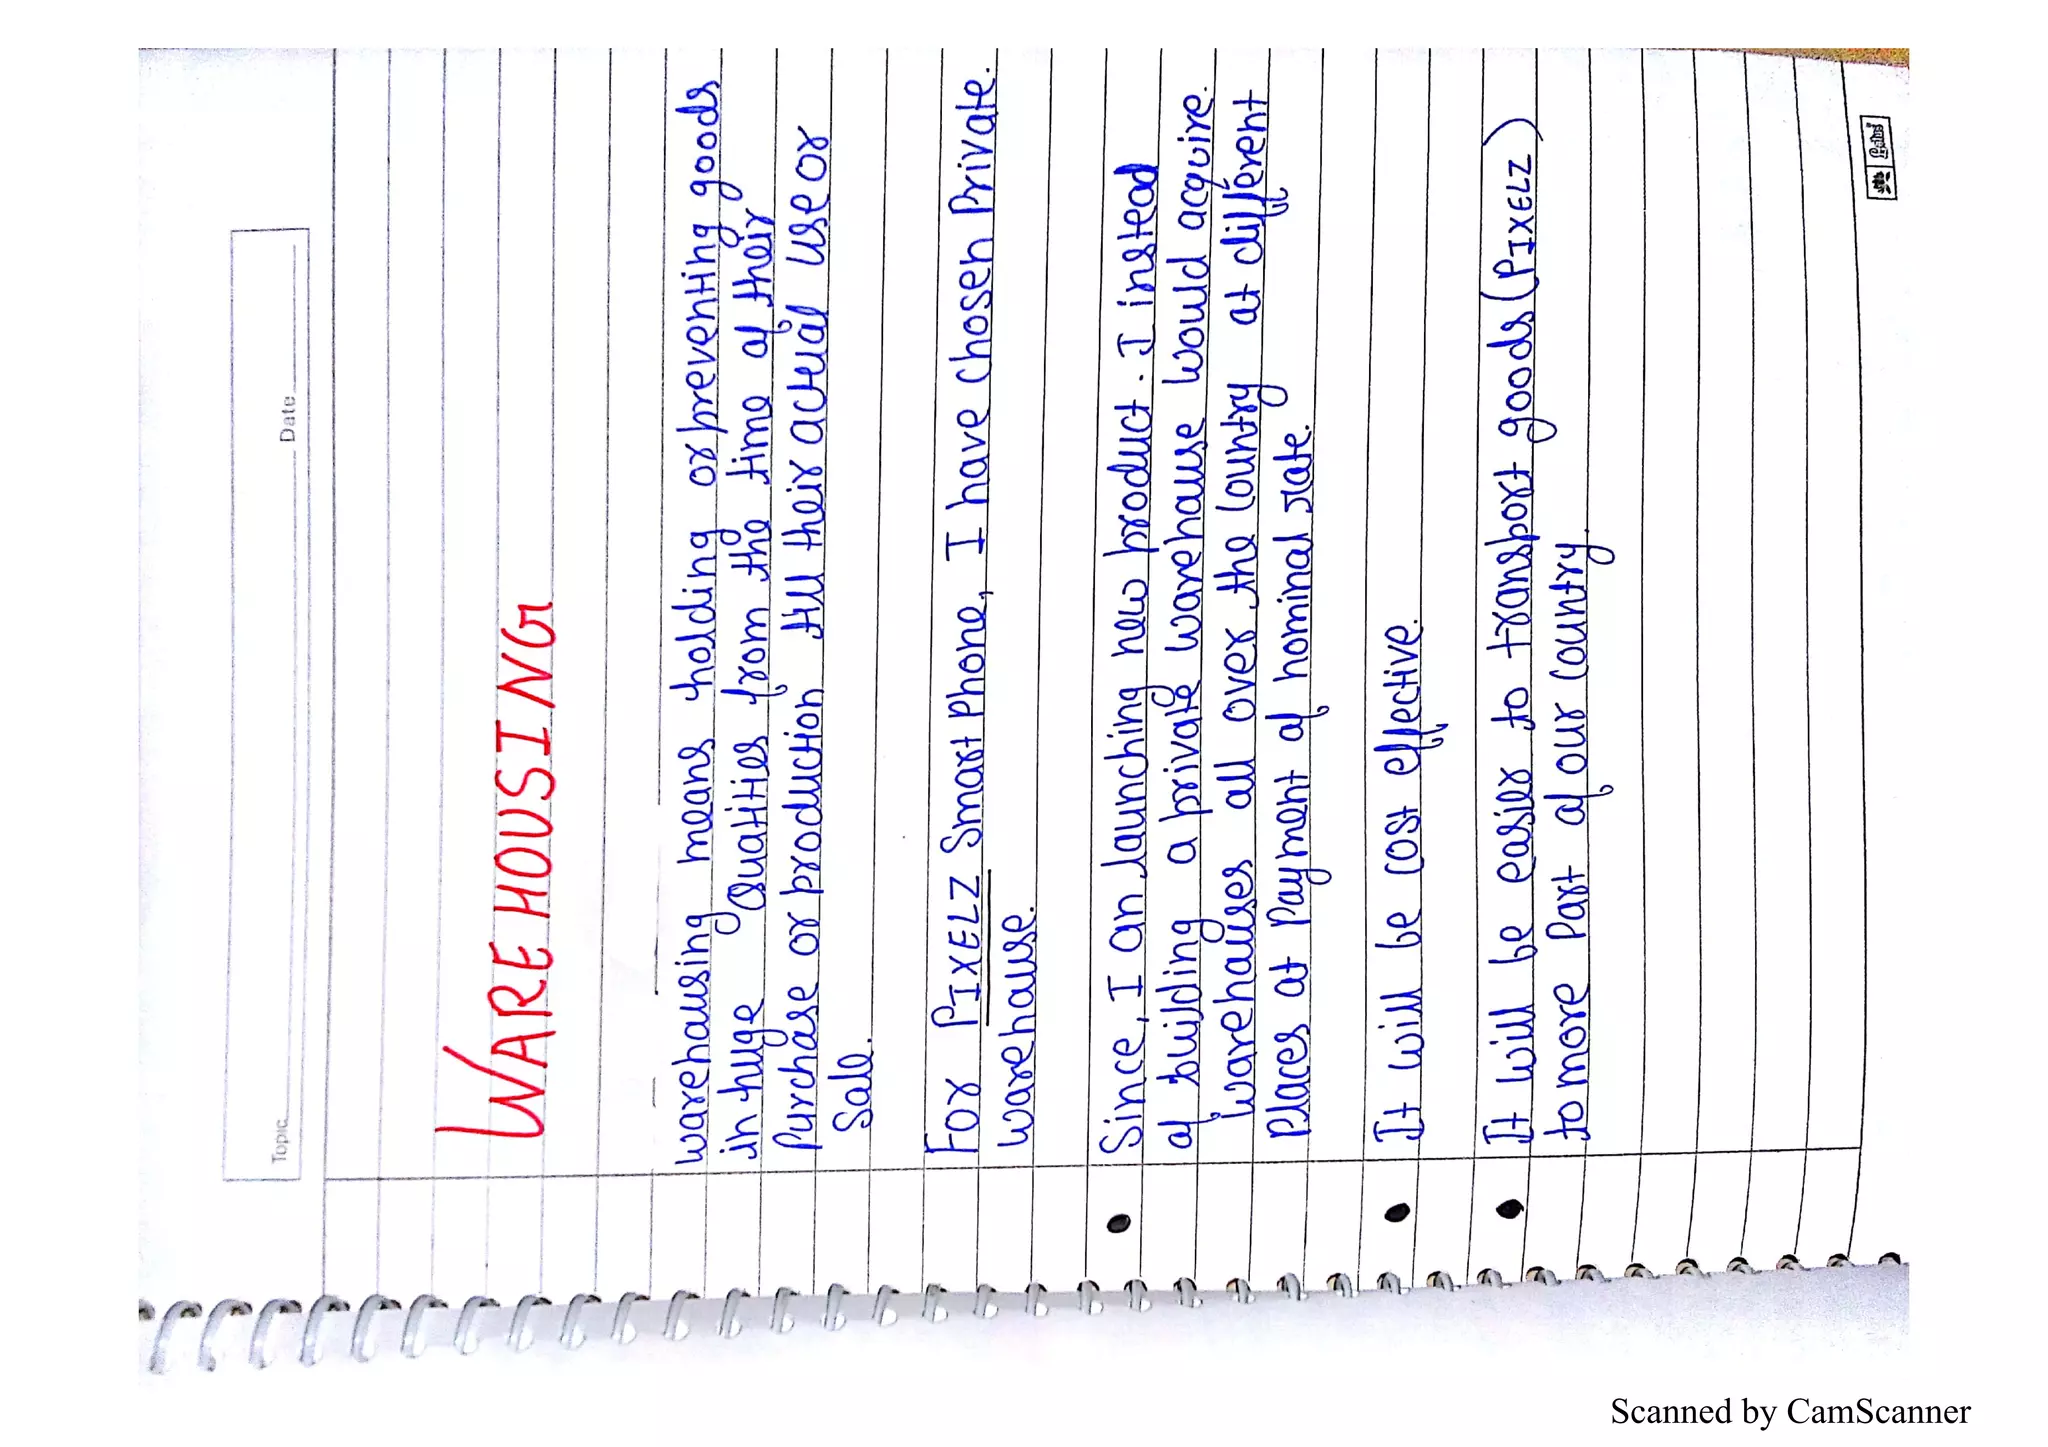 Topic
Date
WAREHOUSING
warehousing means holding or preventing goods
in huge Quatities from the time of their
Purchase or production till their actual use or
Sale.
For PIXELZ Smart Phone, I have chosen Private.
warehouse.
Since, I an launching new product. I instead
of building a private warehouse would acquire.
warehouses all over the country at different
Places at Payment of nominal rate.
It will be cost effective.
It will be easier to transport goods (PIXELZ)
to more Part of our country.
Scanned by CamScanner